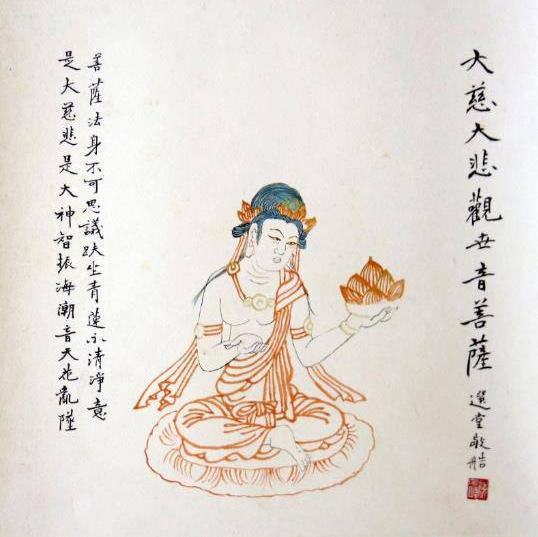 大慈大悲觀世音菩薩
選堂敬
菩薩法身不可思議趺坐青蓮示清淨意
是大慈悲是大神智振海潮音天花亂墜